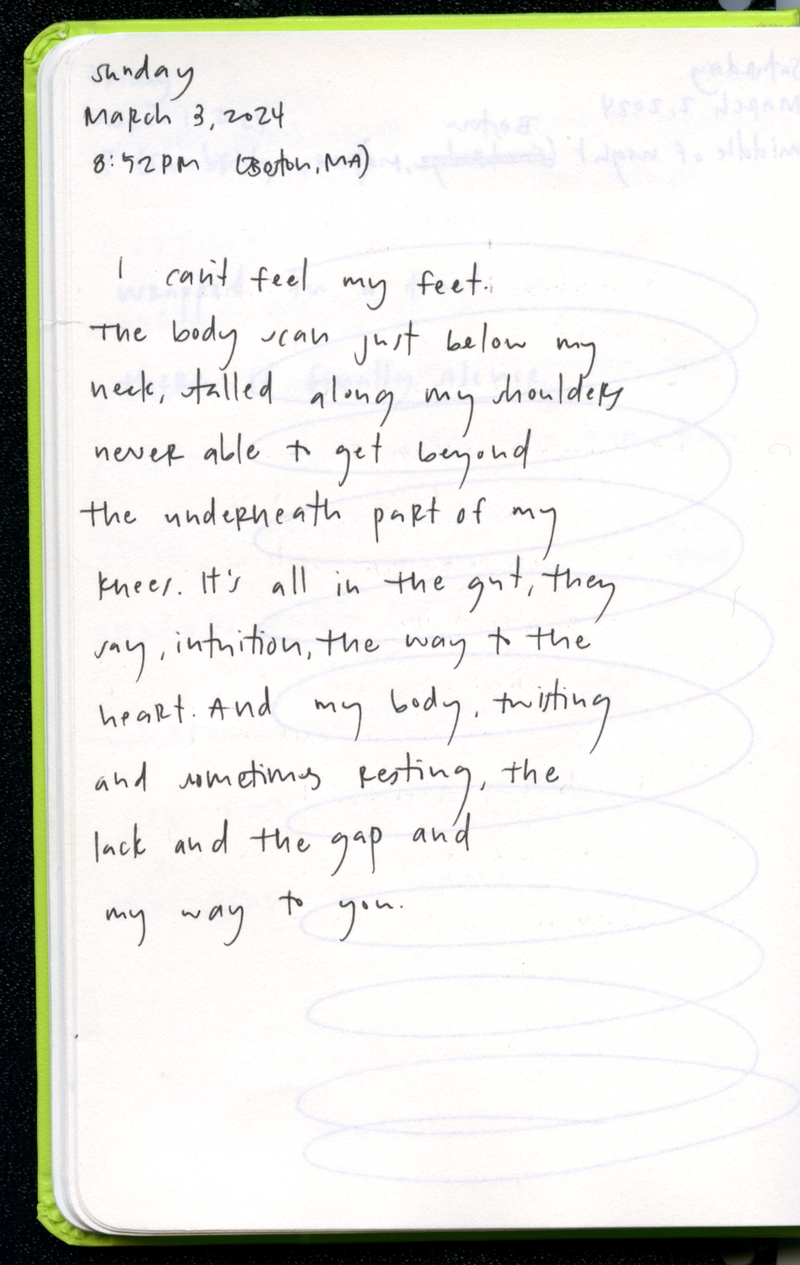 Sunday
March 3, 2024
8:52PM (Boston, MA)
I can't feel my feet.
The body scan just below my
neck, stalled along my shoulders
never able to get beyond
the underneath part of my
knees. It's all in the gut, they
say, intuition, the way to the
heart. And my body, twisting
and sometimes resting, the
lack and the gap and
my way to you.
Saturday
March 2, 2024
Boston
middle of night